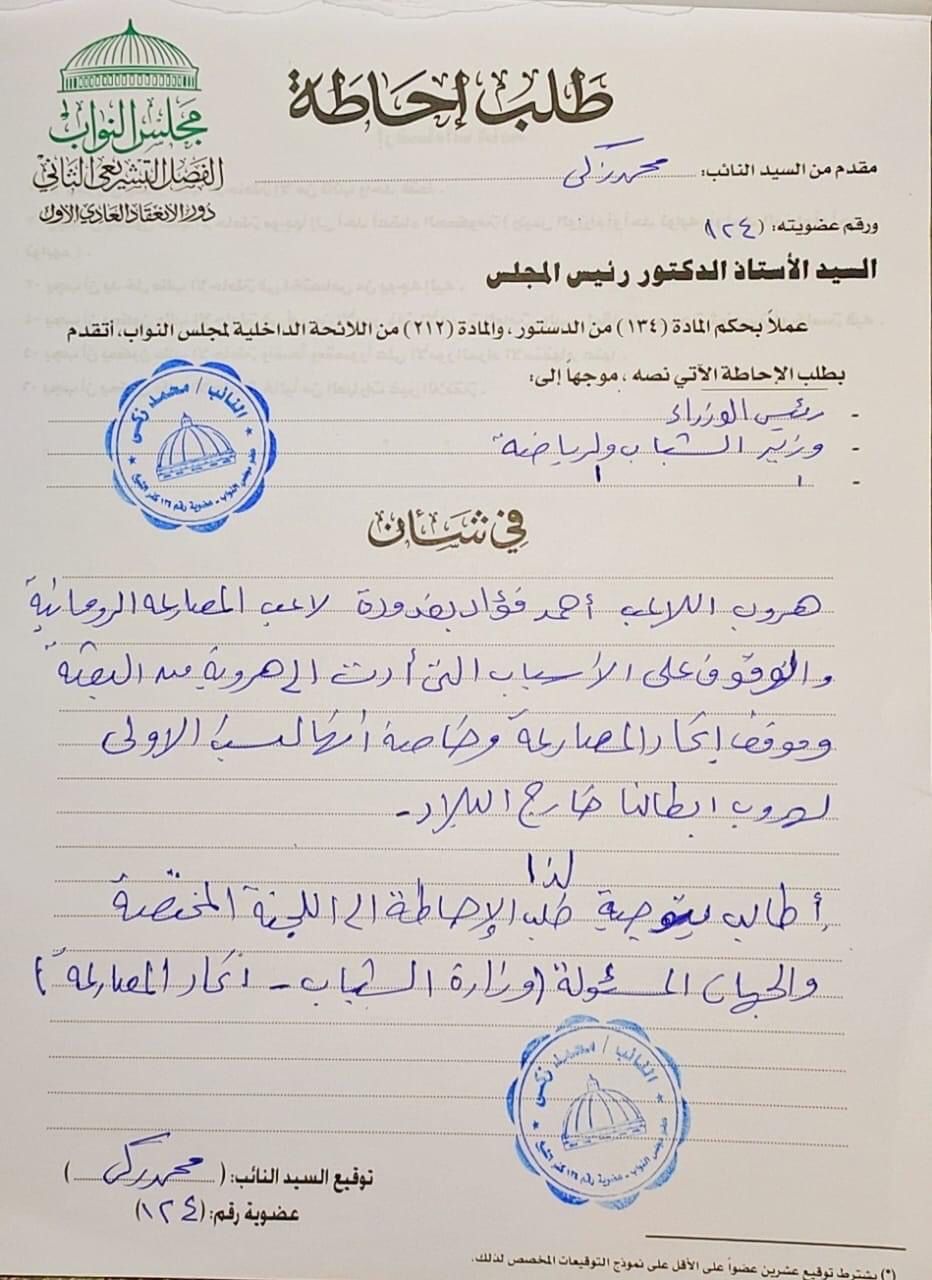 مجلس النواب
الفصل التشريعي الثاني
دور الانعقاد العادي الأول
طلب إحاطة
مقدم من السيد النائب: محمد زكى
ورقم عضويته: (١٢٤
السيد الأستاذ الدكتور رئيس المجلس
عملاً بحكم المادة (١٣٤) من الدستور، والمادة (٢١٢) من اللائحة الداخلية لمجلس النواب، أتقدم
بطلب الإحاطة الآتي نصه، موجهاً إلى:
- رئيس الوزراء
- وزير الشباب والرياضة
-
النائب / محمد زكى
في شأن
هروب اللاعب أحمد فؤاد بغدودة لاعب المصارعه الرومانية
والوقوف على الأسباب التى أدت الى هروبة من البعثة
وموقف إتحاد المصارعة وخاصة أنها ليست الاولى
لهروب ابطالنا خارج البلاد -
لذا
أطالب بتوجية طلب الإحاطة الى اللجنة المختصة
والجهات المسئولة (وزارة الشباب - اتحاد المصارعة)
النائب / محمد زكى
توقيع السيد النائب: (محمد زكى)
عضوية رقم: (١٢٤)
(*) يشترط توقيع عشرين عضواً على الأقل على نموذج التوقيعات المخصص لذلك.